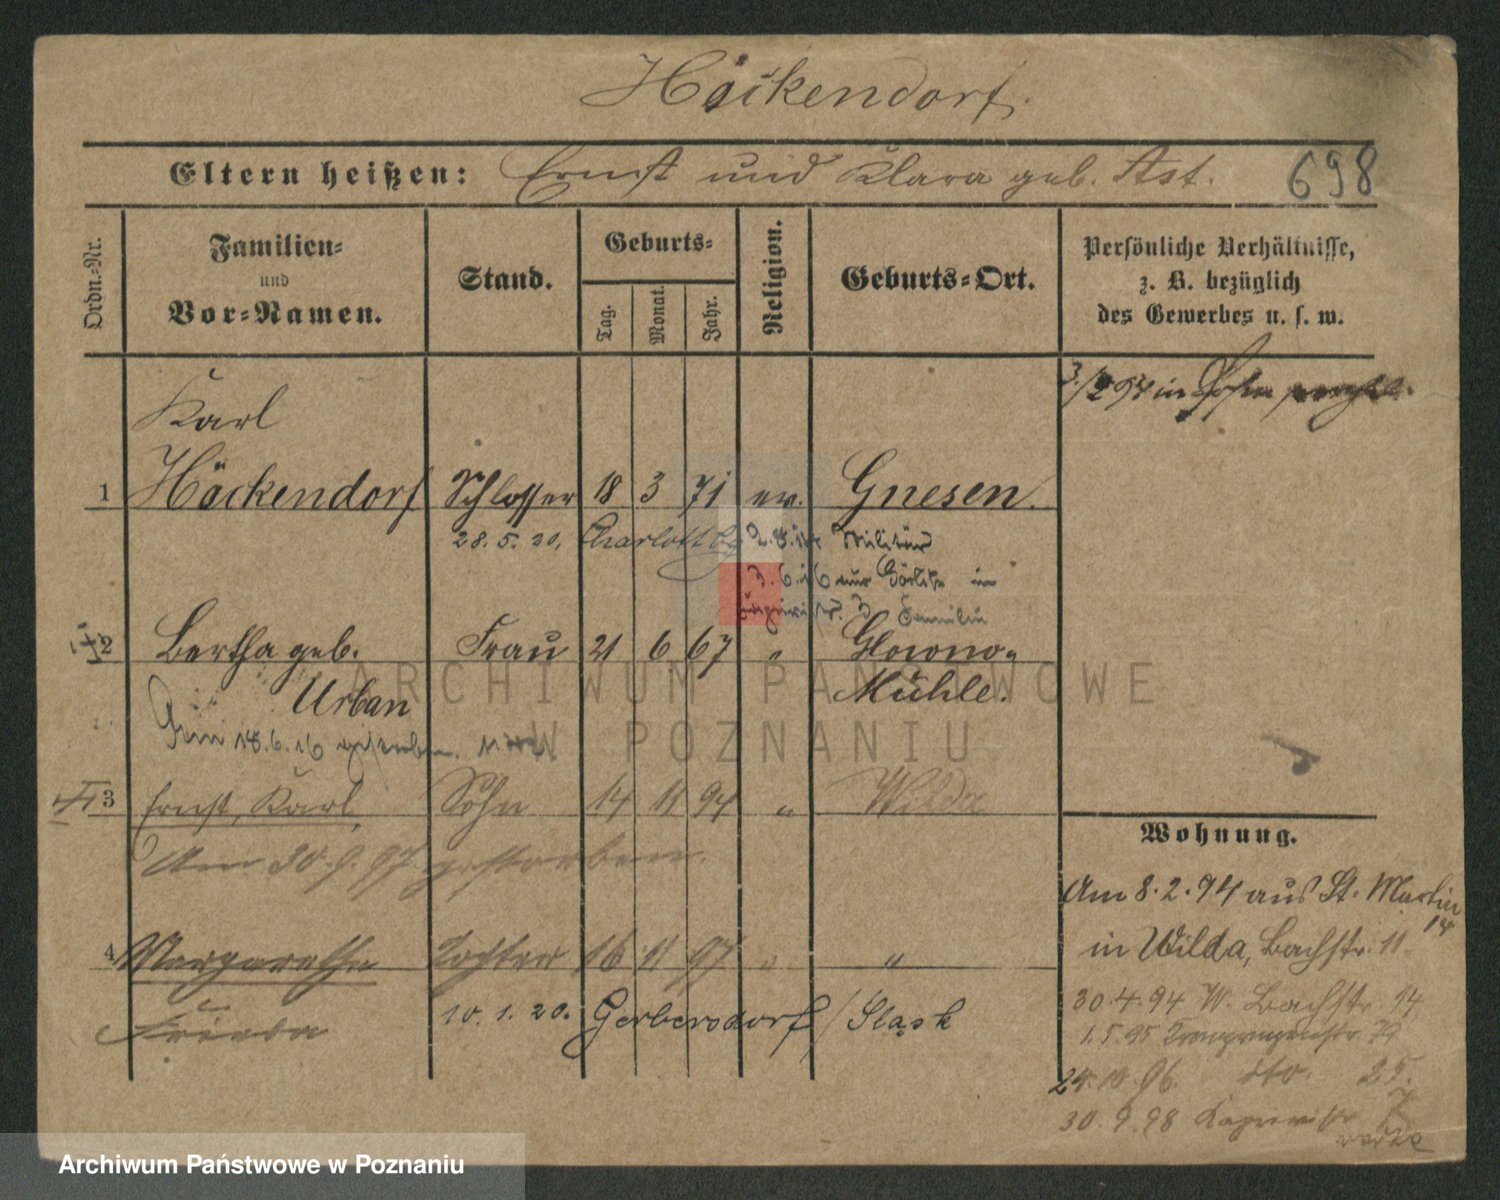 Häckendorf.
Eltern heißen: Ernst und Klara geb. Ast. 698
Ordn.-Nr.
Familien-
und
Vor-Namen.
Stand.
Geburts-
Tag. Monat. Jahr.
Religion.
Geburts-Ort.
Persönliche Verhältnisse,
z. B. bezüglich
des Gewerbes u. s. w.
3./2 94 in Posen
Karl
1 Häckendorf Schlosser 18 3 71 ev. Gnesen.
28. 5. 20. Charlottbg Militär
3. 6. 16 aus Görlitz in
3 Familie
2 Bertha geb. Frau 21 6 67 " Glowno-
Urban Mühle.
Am 18.6.16 gestorben.
3 Ernst, Karl Sohn 14 11 94 " Wilda
Am 30. 9. 97 gestorben.
4 Margarethe Tochter 16 11 97 " "
Frieda 10. 1. 20. Gerbersdorf / Śląsk
Wohnung.
Am 8. 2. 94 aus St. Martin
14
in Wilda, Bachstr. 11.
30. 4. 94 W. Bachstr. 14
1. 5. 95 Kronprinzenstr 79
24. 10. 96. dto. 25.
30. 9. 98
ARCHIWUM PAŃSTWOWE
W POZNANIU
Archiwum Państwowe w Poznaniu